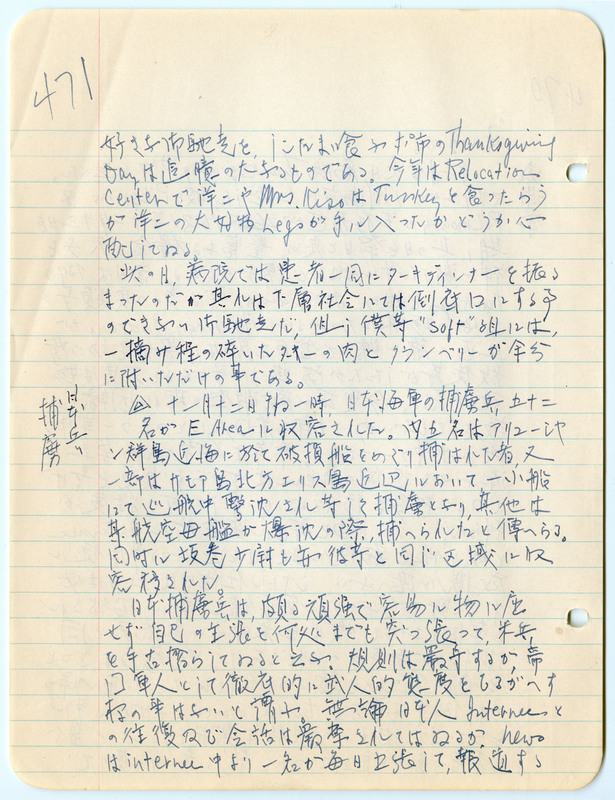 471
好きな御馳走を、しこたま食ふ片市のThanksgiving
Day は追憶の大なるものである。今年はRelocation
Centerで洋二やMrs. KisoはTurkeyを食ったらう
が洋二の大好物Legsが手に入ったかどうか心
配してゐる。
此の日、病院では患者一同にターキディンナーを振る
まったのだが其れは下層社会にては到底口にする事
のできない御馳走だ、但し僕等"soft"組には、
一摘み程の砕いたターキーの肉とクランベリーが余分
に附いただけの事である。
日本兵
捕虜
十一月十二日午后一時、日本海軍の捕虜兵、五十二
名が E Areaに収容された。内五名はアリューシャ
ン群島近海に於て破損船をめぐり捕はれた者、又
一部は 島北方エリス島近辺に於いて一小船
にて巡航中撃沈され等して捕虜となり、其他は
某航空母艦が爆沈の際、捕へられたと傳へらる。
同時に坂巻少尉も亦彼等と同じ区域に収
容移された。
日本捕虜兵は、頗る頑強で容易に物に屈
せず自己の主張を何処までも突っ張って、米兵
を手古摺らしてゐると云ふ、規則は厳守するが、帝
国軍人として徹底的に武人的態度をもるがへす
様の事はないと謂ふ。無論日本人 Internee と
の往復及び会話は厳禁されてはゐるが、news
はinternee 中より一名が毎日出張して、報道する